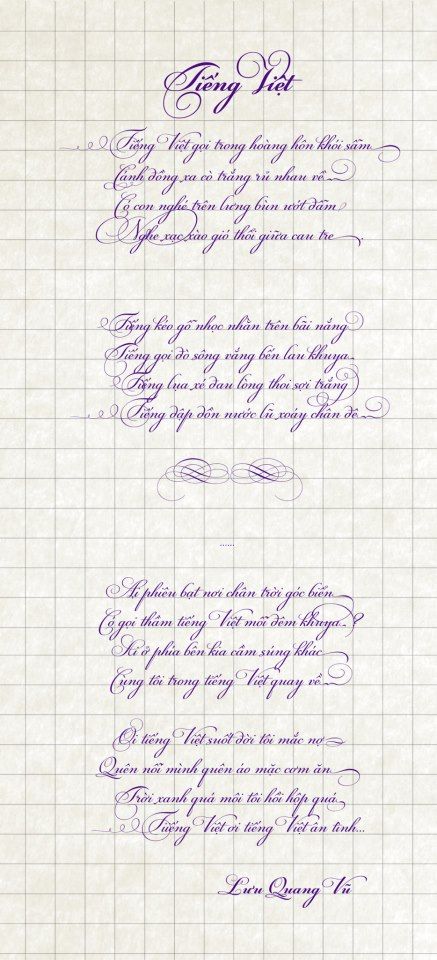 Tiếng Việt
Tiếng Việt gọi trong hoàng hôn khói sẫm
Cánh đồng xa cò trắng rủ nhau về
Có con nghé trên lưng bùn ướt đẫm
Nghe xạc xào gió thổi giữa cau tre.
Tiếng kéo gỗ nhọc nhằn trên bãi nắng
Tiếng gọi đò sông vắng bến lau khuya
Tiếng lụa xé đau lòng thoi sợi trắng
Tiếng dập dồn nước lũ xoáy chân đê
......
Ai phiêu bạt nơi chân trời góc biển
Có gọi thầm tiếng Việt mỗi đêm khuya?
Ai ở phía bên kia cầm súng khác
Cùng tôi trong tiếng Việt quay về
Ôi tiếng Việt suốt đời tôi mắc nợ
Quên nỗi mình quên áo mặc cơm ăn
Trời xanh quá môi tôi hồi hộp quá
Tiếng Việt ơi tiếng Việt ân tình...
Lưu Quang Vũ